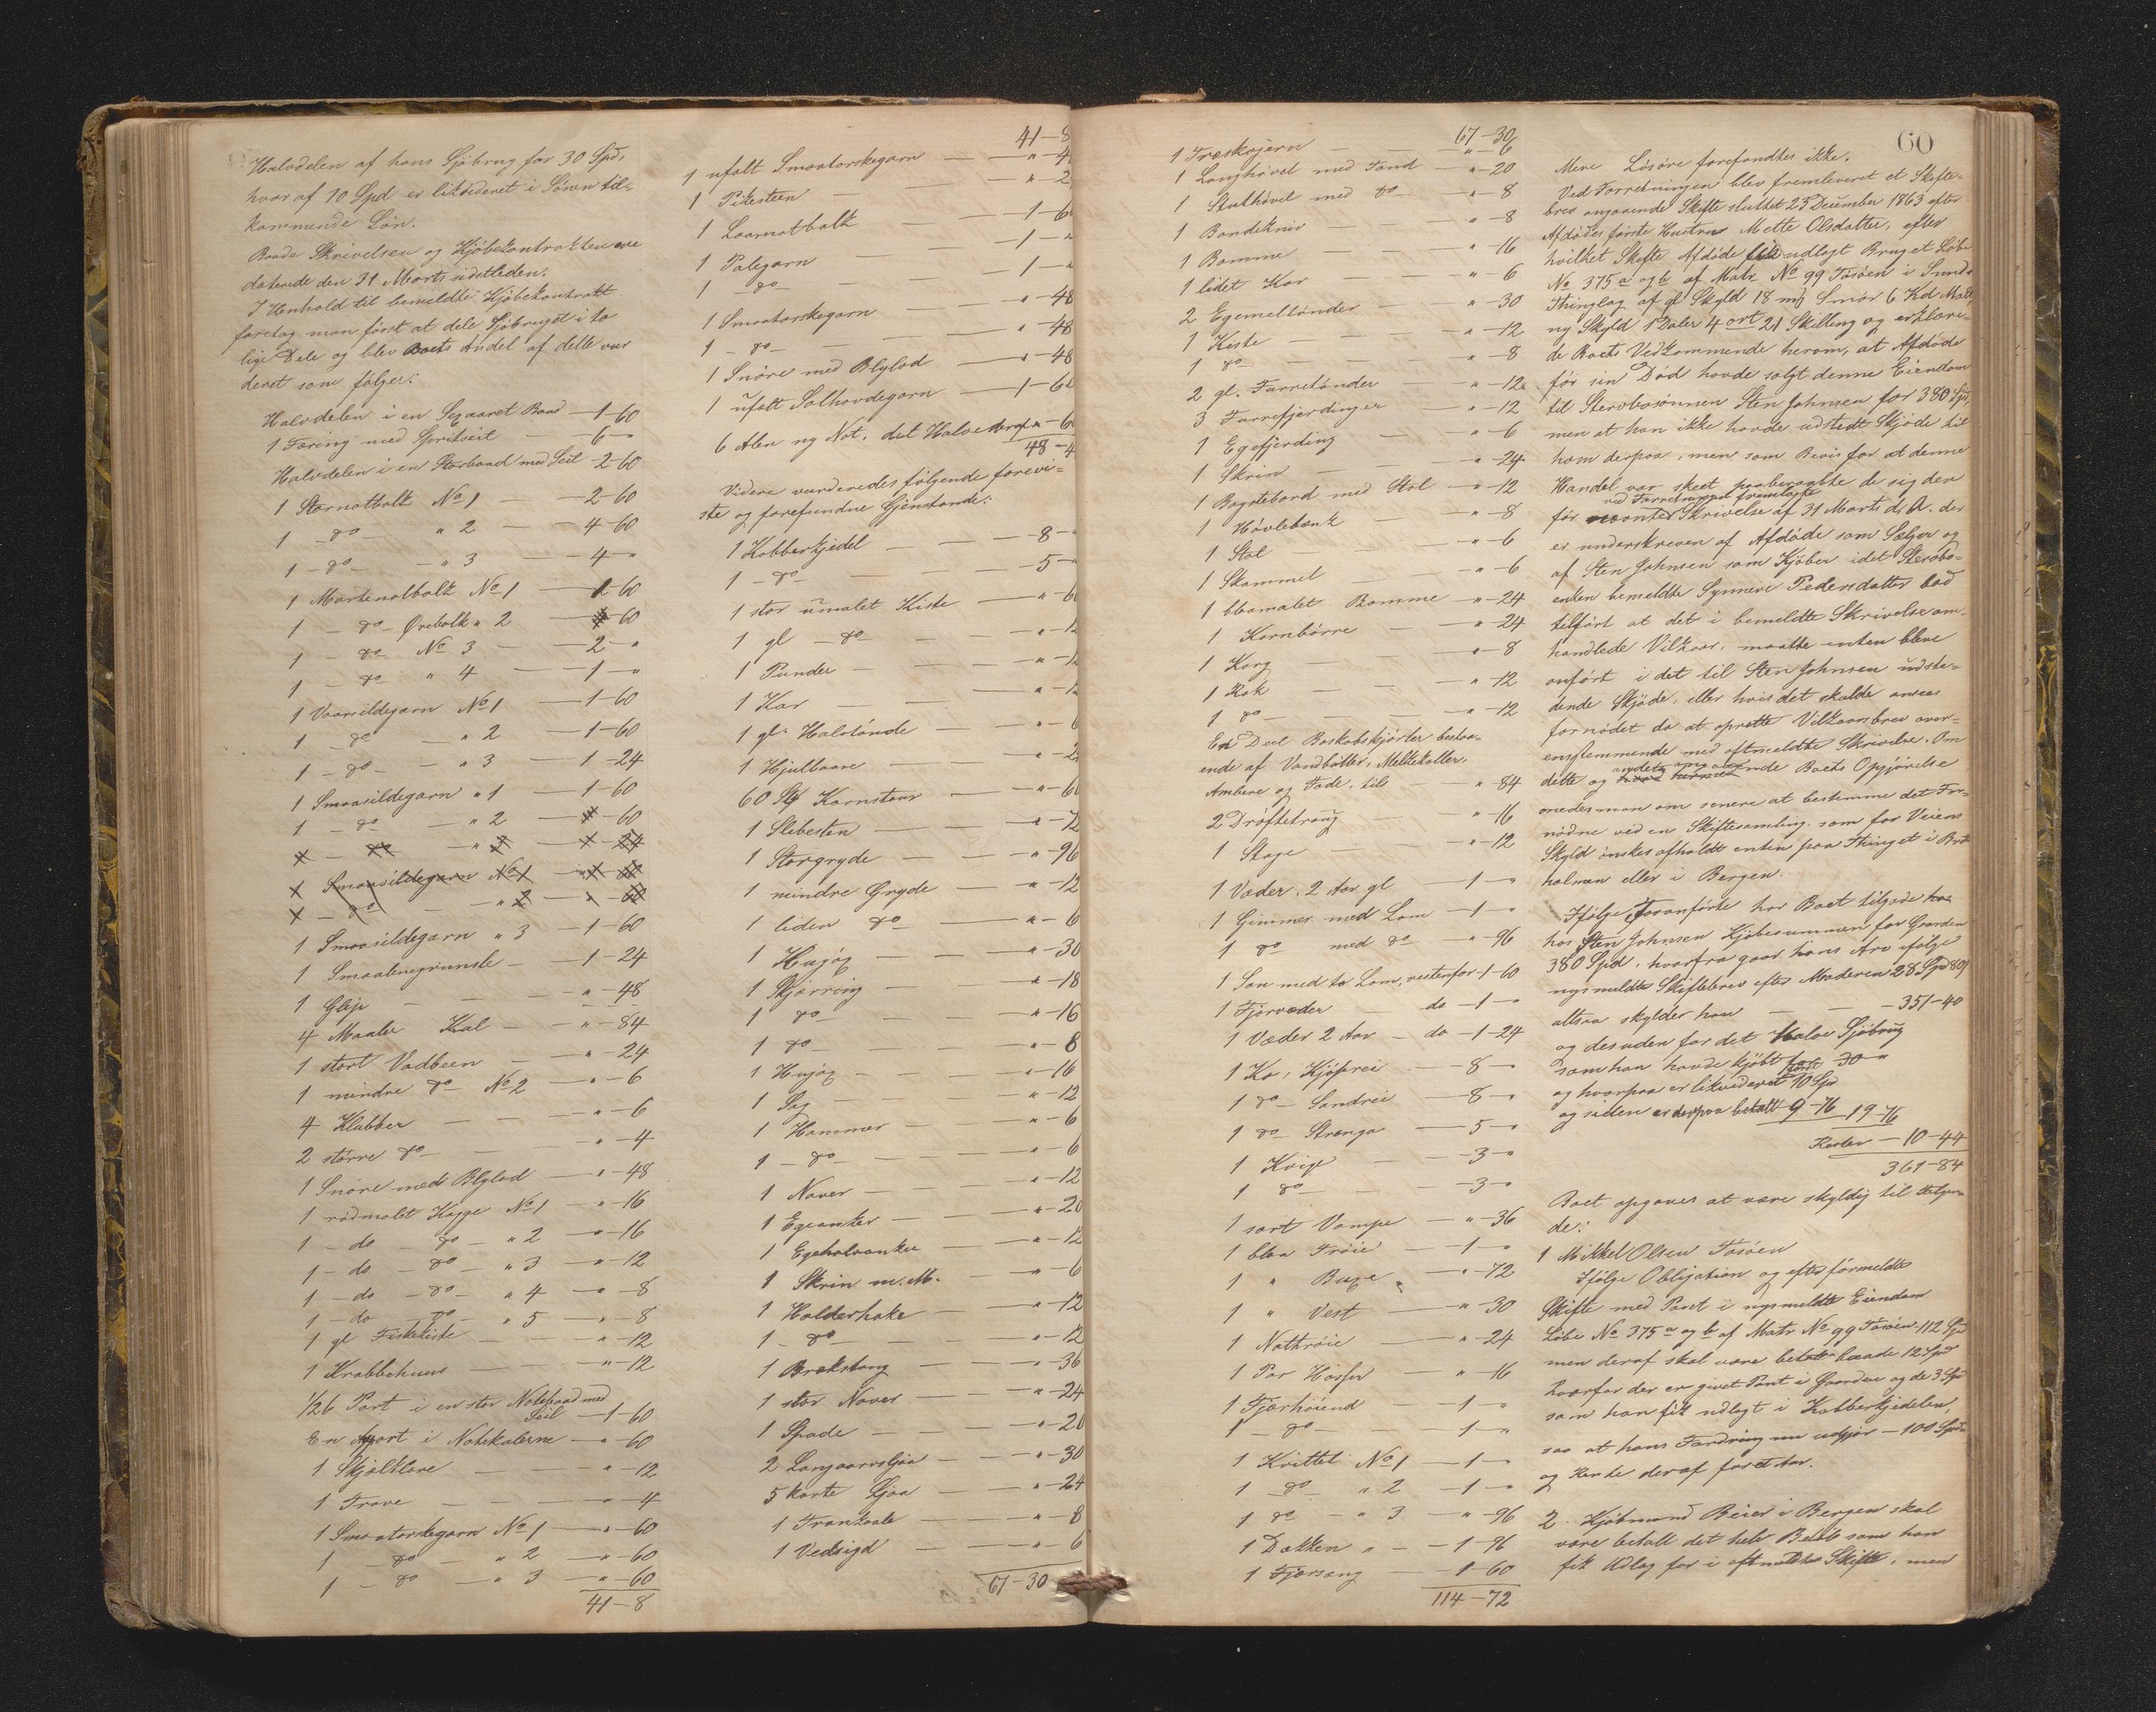 Halvdelen af hans Sjøbrug for 30 Spd,
hvoraf 10 Spd er likvideret i Sønen til-
kommende Løn.
Baade Skrivelsen og Kjøbekontrakten ere
daterede den 31 Marts sidstleden.
I Henhold til bemeldte Kjøbekontrakt
foretog man først at dele Sjøbruget i to
lige Dele og blev Boets Andel af dette vur
deret som følger:
Halvdelen i en Sexaaret Baad — 1-60
1 Færing med Spritseil — 6 - "
Halvdelen i en Storbaad med Seil - 2-60
1 Stornotbolk No 1 — 2-60
1 - do - " 2 — 4-60
1 - do - " 3 — 4 - "
1 Mortenotbolk No 1 — 1-60
1 - do - Ørebolk " 2 — 60
1 - do No 3 — 2 - "
1 - do " 4 — 1 - "
1 Vaarsildegarn No 1 — 1-60
1 - do - " 2 — 1-60
1 - do - " 3 — 1-24
1 Smaasildegarn " 1 — 1-60
1 - do - " 2 — 60
1 - do - " 3 - 1 - 24
1 Smaasildegarn No 1
1 - do - " 2 - 1 - 60
1 Smaasildegarn " 3 — 1-60
1 Smaalinegrunsle — 1-24
1 Gleip — " - 48
4 Maaler Kal — " - 84
1 stort Vadbeen — " - 24
1 mindre do No 2 — " - 6
4 Klubber — " - 6
2 større do — " - 4
1 Snøre med Blylod — " - 48
1 rødmalet Kagge No 1 — " - 16
1 - do - do - " 2 — " - 16
1 - do - do - " 3 — " - 12
1 - do - do - " 4 — " - 8
1 - do - do - " 5 — " - 8
1 gl Fiskekiste — " - 12
1 Krabbehuus — " - 12
1/26 Part i en stor Notebaad med
Seil — 1-60
En Apart i Notekalerne — " - 60
1 Skjølklove — " - 12
1 Trave — " - 4
1 Smaatorskegarn No 1 — " - 60
1 - do - " 2 — " - 60
1 - do - " 3 — " - 60
41-8
41-8
1 ufalt Smaatorskegarn — " - 4
1 Pilesteen — " - 2
1 Laanotbolk — 1-6
1 Palegarn — 1 - "
1 - do - — 1 - "
1 Smaatorskegarn — " - 48
1 - do - — " - 48
1 Snøre med Blylod — " - 48
1 ufalt Solhovdegarn — 1-6
6 Alen ny Not, det Halve deraf " - 6
48-4
Videre vurderedes følgende forevi-
ste og forefundne Gjenstande:
1 Kobberkjedel — 8 - "
1 - do — 5 - "
1 stor umalet Kiste — " - 6
1 gl - do — " - 12
1 Punder — " - 12
1 Kar — " - 12
1 gl. Halvtønde — " - 6
1 Hjulbaare — " - 2
60 Stk Kornstaur — " - 6
1 Slibesten — " - 72
1 Storgryde — " - 96
1 mindre Gryde — " - 12
1 liden do — " - 6
1 Hugøg — " - 30
1 Skjærring — " - 18
1 do — " - 16
1 do — " - 8
1 Hugøg — " - 16
1 Sag — " - 12
1 Hammer — " - 6
1 - do — " - 6
1 Naver — " - 12
1 Egeanker — " - 20
1 Egehalvanker — " - 12
1 Skrin m. M. — " - 6
1 Holderhake — " - 12
1 - do — " - 12
1 Brækstang — " - 36
1 stor Naver — " - 24
1 Spade — " - 20
2 Langaarvsljaa — " - 30
5 korte Ljaa — " - 24
1 Trankaale — " - 8
1 Vedsigd — " - 6
67-30
67-30
1 Træskojern — " - 6
1 Langhøvel med Tand — " - 20
1 Sluthøvel med do — " - 8
1 Bandekniv — " - 8
1 Bomme — " - 16
1 lidet Kar — " - 6
2 Egemeltønder — " - 30
1 Kiste — " - 12
1 do — " - 8
2 gl. Farretønder — " - 12
3 Farrefjerdinger — " - 12
1 Egefjerding — " - 6
1 Skrin — " - 24
1 Bagstebord med Stol — " - 12
1 Høvlebænk — " - 8
1 Stol — " - 6
1 Skammel — " - 6
1 blaamalet Bomme — " - 24
1 Kornbørre — " - 24
1 Korg — " - 8
1 Rok — " - 12
1 do — " - 12
En Deel Boskabskjørler bestaa-
ende af Vandbøtter, Melkekoller,
Ambere og Fade, tils — " 84
2 Drøftetraug — " 16
1 Stage — " - 12
1 Væder, 2 Aar gl — 1 - "
1 Gimmer med Lam — 1 - "
1 do med do — " - 96
1 Sou med to Lam, vestenfor - 1-60
1 Fjorvæder do - 1 - "
1 Væder 2 Aar - do - 1-24
1 Ko, Kjøprei — 8 - "
1 do - Sandrei — 8 - "
1 do - Stranga — 5 - "
1 Kvige — 3 - "
1 do — 3 - "
1 sort Vampe — " - 36
1 blaa Trøie — 1 - "
1 " Buxe — " - 72
1 " Vest — " - 30
1 Nattrøie — " - 24
1 Par Hoser — " - 16
1 Fjærhøiend — 1 - "
1 - do - — 1 - "
1 Kvittel No 1 — 1 - "
1 do " 2 — 1 - "
1 do - " 3 — " - 96
1 Dækken " — 1-96
1 Fjærsæng — 1-60
114-72
60
Mere Løsøre forefandtes ikke.
Ved Forretningen blev fremleveret et Skifte-
brev angaaende Skifte sluttet 23 December 1863 efter
Afdødes første Hustru Mette Olsdatter, efter
hvilket Skifte Afdøde blev udlagt Bruget Løbe
No 375 a og b af Matr No 99 Tosøen i Sunds
Thinglag af gl Skyld 18 mk Smør 6 Kd Malt,
ny Skyld 1 Daler 4 ort 21 Skilling og erklære-
de Boets Vedkommende herom, at Afdøde
før sin Død havde solgt denne Eiendom
til Stervbosønnen Sten Johnsen for 380 Spd,
men at han ikke havde udstedt Skjøde til
ham derpaa, men som Bevis for at denne
Handel var skeet paaberaabte de sig den
ved Forretningen fremlagte
før Skrivelse af 31 Marts d. A. der
er underskreven af Afdøde som Sælger og
af Sten Johnsen som Kjøber idet Stervbo-
enken bemeldte Synneve Pedersdatter bad
tilført at det i bemeldte Skrivelse om-
handlede Vilkaar, maatte enten blive
anført i det til Sten Johnsen udste-
dende Skjøde, eller hvis det skulde ansees
fornødet da at oprette Vilkaarsbrev over-
ensstemmende med oftmeldte Skrivelse. Om
dette og andet angaaende Boets Opgjørelse
enedes man om senere at bestemme det For-
nødne ved en Skiftesamling, som for Veiens
Skyld ønskes afholdt enten paa Thinget i Bræ
holmen eller i Bergen.
Ifølge Foranførte har Boet tilgode hos
hos Sten Johnsen Kjøbesummen for Gaarden
380 Spd, hvorfra gaar hans Arv ifølge
nysmeldte Skiftebrev efter Moderen 28 Spd 80
altsaa skylder han — 351-40
og desuden for det halve Sjøbrug
som han havde kjøbt for 30 - "
og hvorpaa er likvideret 10 Spd
og siden er derpaa betalt 9-76 19-76
Rester — 10-44
361-84
Boet opgaves at være skyldig til følgen
de:
1 Mikkel Olsen Tosøen
Ifølge Obligation og efter førmeldte
Skifte med Pant i nysmeldte Eiendom
Løbe No 375 a og b af Matr No 99 Tosøen - 112 Spd
men deraf skal være betalt baade 12 Spd
hvorfor der er givet Pant i Gaarden og de 3 Spd
som han fik udlagt i Kobberkjedelen,
saa at hans Fordring nu udgjør — 100 Spd
og Rente deraf foret Aar.
2. Kjøbmand Beier i Bergen skal
være betalt det hele Beløb som han
fik Udlæg for i oftmeldte Skifte, men